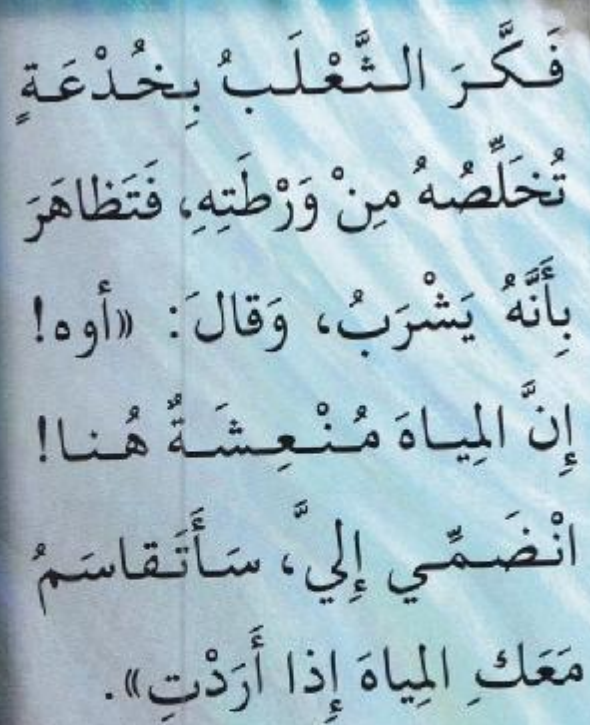 فَكَّرَ الثَّعْلَبُ بِخُدْعَةٍ
تُخَلِّصُهُ مِنْ وَرْطَتِهِ، فَتَظاهَرَ
بِأَنَّهُ يَشْرَبُ، وَقالَ: «أوه!
إِنَّ المِياهَ مُنْعِشَةٌ هُنا!
انْضَمِّي إِليَّ، سَأَتَقاسَمُ
مَعَكِ المِياهَ إِذا أَرَدْتِ».